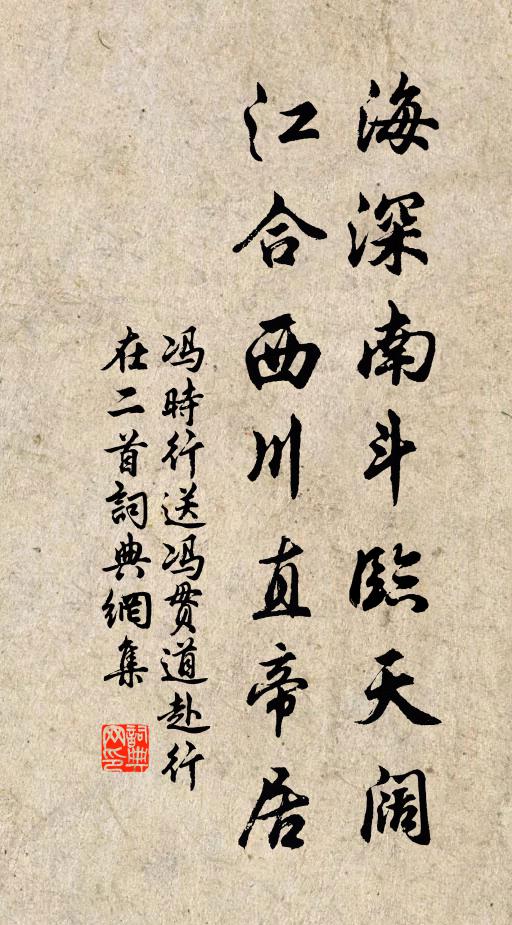 海深南斗臨天阔
江合西川直帝居
冯時行送冯贯道赴行
在二首詞典網集
詞典网印